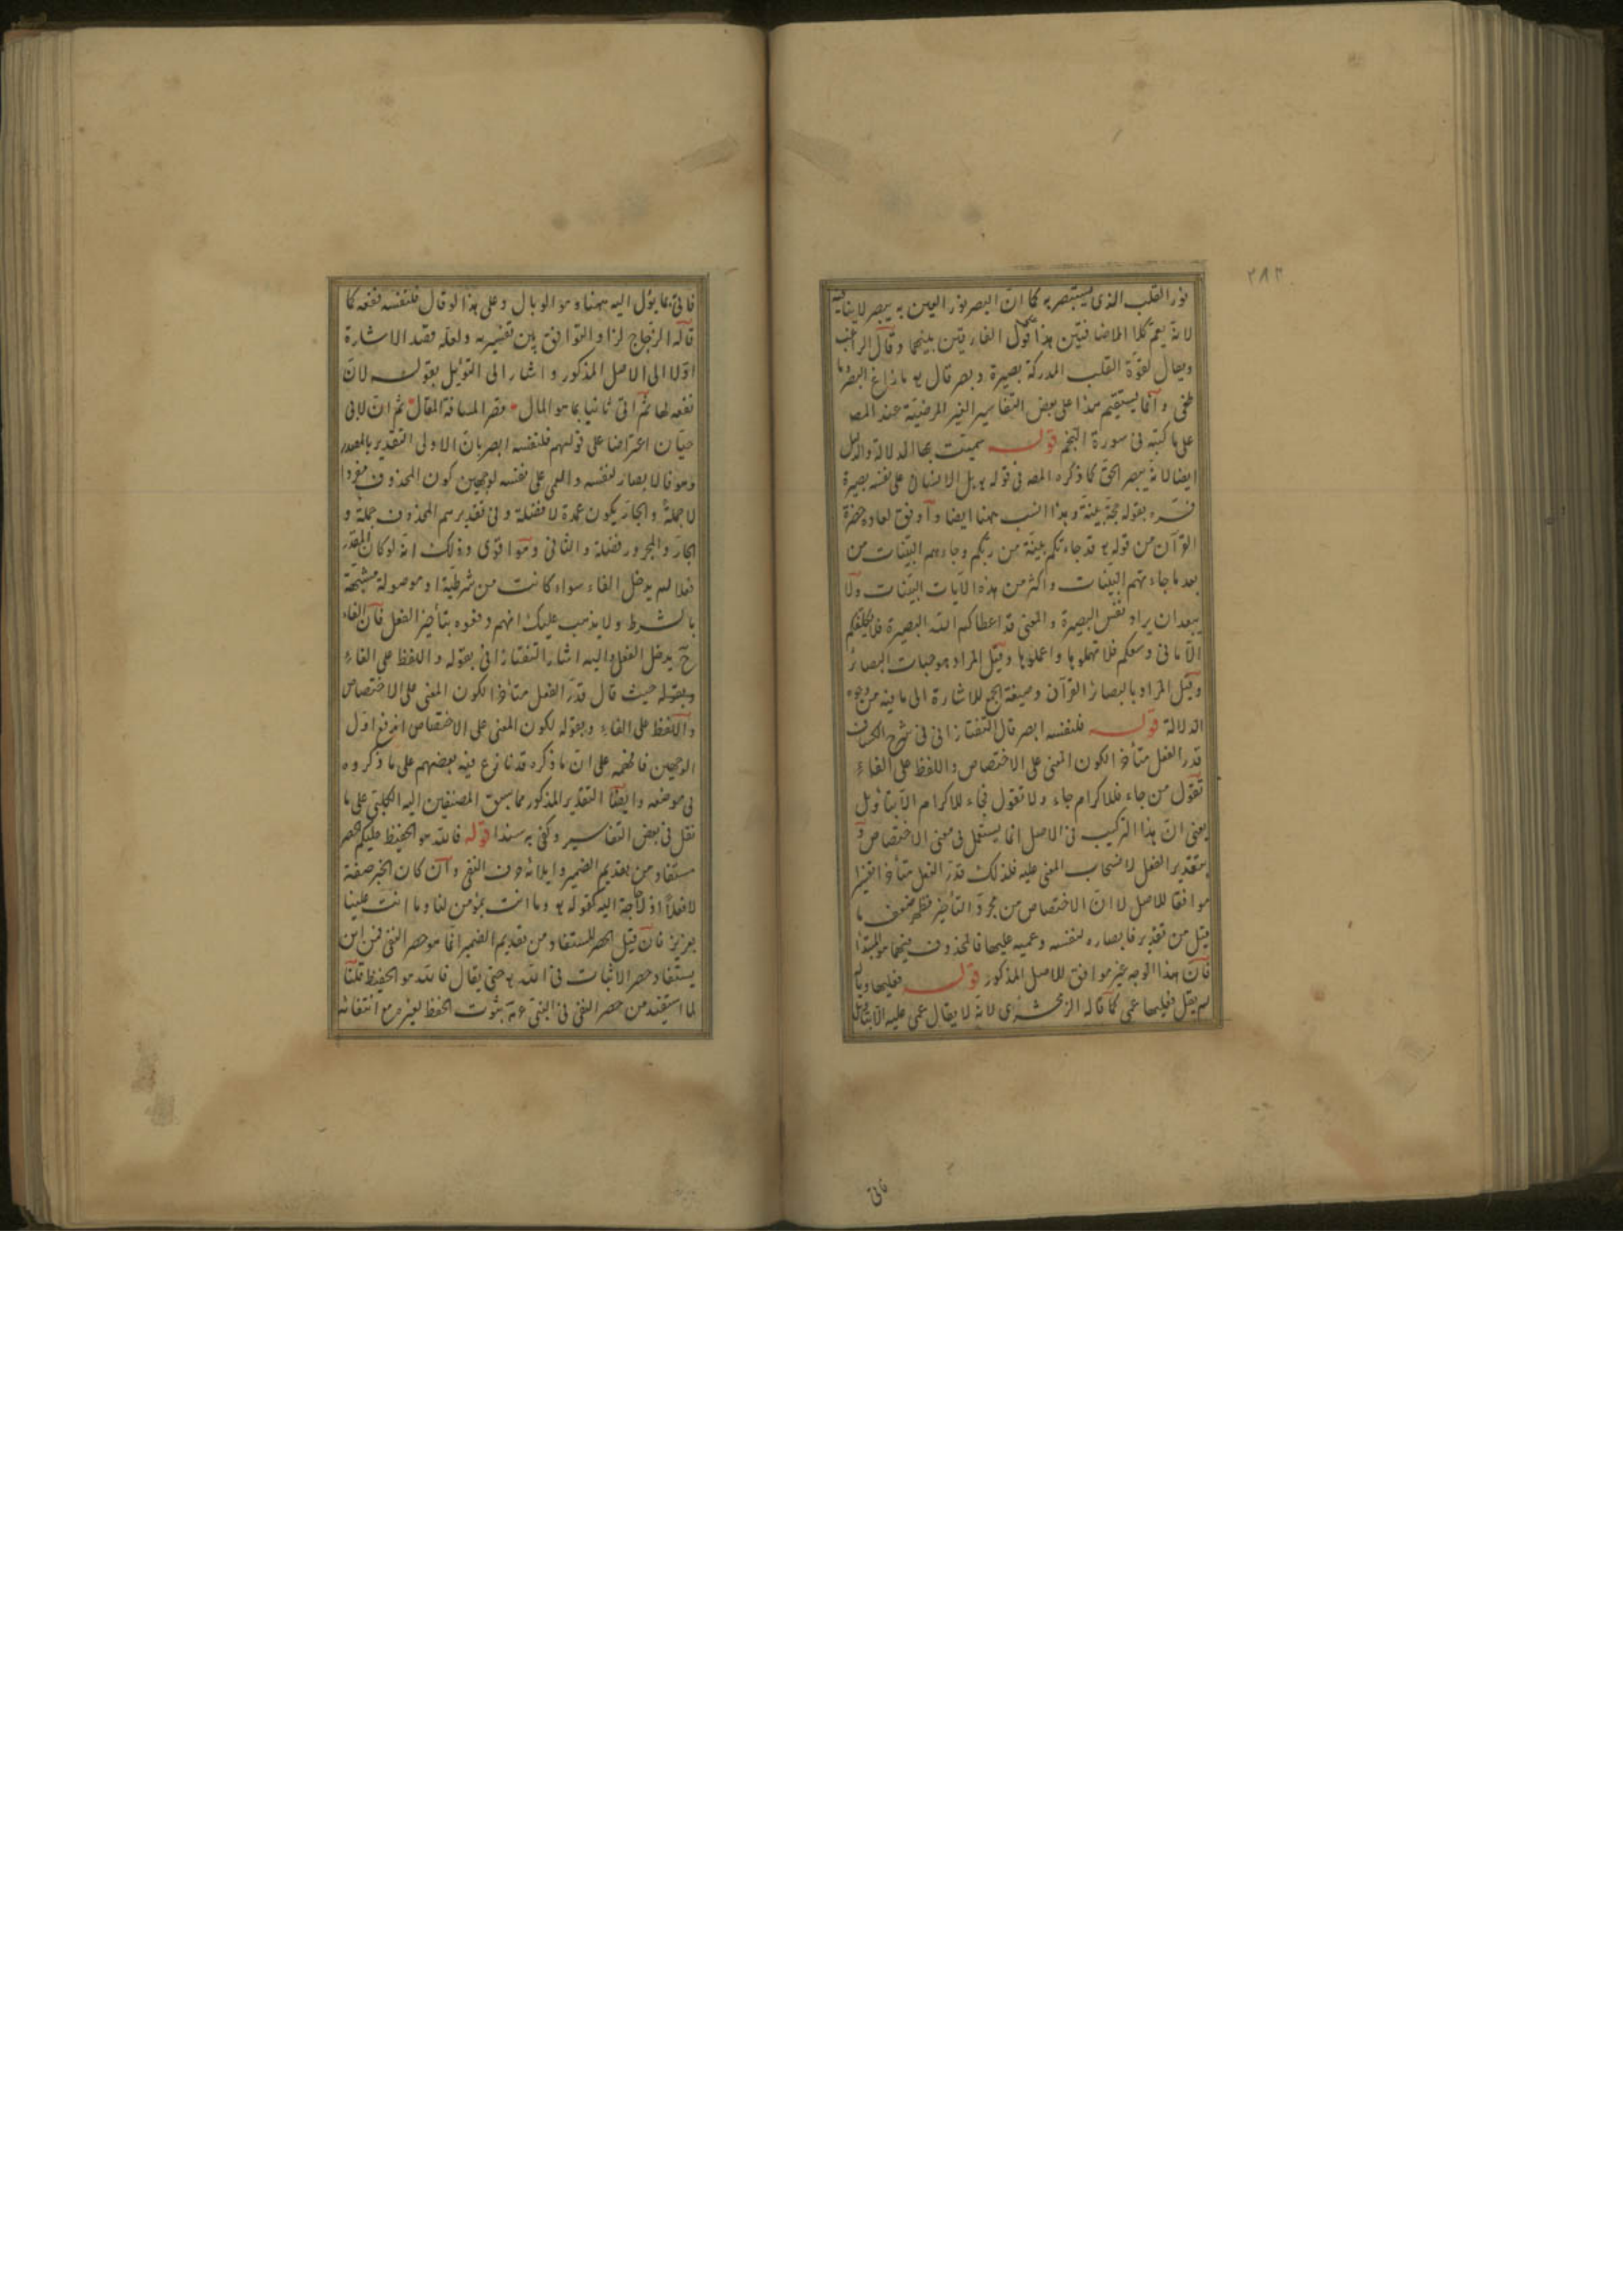 ٢٨٣
نور القلب الذى يستبصر به كما انّ البصر نور العين به يبصر لا ينافيه
لانه يعم كلا الاضافتين هذا قول الفارقين بينهما وقال الراغب
ويقال لقوّة القلب المدركة بصيرة وبصر قال تع ما زاغ البصر وما
طغى وانما يستقيم هذا على بعض التفاسير الغير المرضيّة عند المص
على ما كتبه فى سورة النجم قوله سميت بها الدلالة والدليل
ايضا لانه يبصر الحق كما ذكره المص فى قوله تع بل الانسان على نفسه بصيرة
فسّره بقوله حجة بينة وهذا انسب ههنا ايضا واوفق لعادة حضرة
القرآن من قوله تع قد جاءتكم بينة من ربكم وجاءهم البيّنات من
بعد ما جاءتهم البينات واكثر من هذه الآيات البيّنات ولا
يبعد ان يراد نفس البصيرة والمعنى قد اعطاكم الله البصيرة فلا يكلفكم
الّا ما فى وسعكم فلا تهملوها واعملوها وقيل المراد موجبات البصائر
وقيل المراد بالبصائر القرآن وصيغة الجمع للاشارة الى ما فيه من وجوه
الدلالة قوله فلنفسه ابصر قال التفتازانى فى شرح الكشاف
قدر الفعل متأخرا لكون المعنى على الاختصاص واللفظ على الفاء
تقول من جاء فللاكرام جاء ولا تقول فجاء للاكرام الّا بتأويل
يعنى انّ هذا التركيب فى الاصل انما يستعمل فى معنى الاختصاص و
بتقدير الفعل لانسحاب المعنى عليه فلذلك قدّر الفعل متأخرا تفسيرا
موافقا للاصل لا انّ الاختصاص من مجرّد التأخير فظهر ضعف ما
قيل من تقدير فابصاره لنفسه وعميه عليها فالمحذوف فيهما هو المبتدأ
فانّ هذا الوجه غير موافق للاصل المذكور قوله فعليها وباله
لم يقل فعليها عمى كما قاله الزمخشرى لانه لا يقال عمى عليه الّا بتأويل
فاتى
فاتى بما يؤل اليه ههنا وهو الوبال وعلى هذا لو قال فلنفسه نفعه كما
قاله الزجاج لزاد التوافق بين تفسيريه ولعله قصد الاشارة
اوّلا الى الاصل المذكور واشار الى التوئيل بقوله لانّ
نفعه لها ثم اتى ثانيا بما هو المال قصر المسافة المقال ثم انّ لابى
حيّان اعتراضا على قولهم فلنفسه ابصر بان الاولى التقدير بالمصدر
وهو فالابصار لنفسه والعمى على نفسه لوجهين كون المحذوف مفردا
لا جملة والجار يكون عمدة لا فضلة وفى تقديرهم المحذوف جملة و
الجارّ والمجرور فضلة والثانى وهو اقوى وذلك انه لو كان المقدّر
فعلا لم يدخل الفاء سواء كانت من شرطية او موصولة مشبّهة
بالشرط ولا يذهب عليك انهم دفعوه بتأخير الفعل فانّ الفاء
ح يدخل الفعل واليه اشار التفتازانى بقوله واللفظ على الفاء
وبقوله حيث قال قدّر الفعل متأخرا لكون المعنى على الاختصاص
واللفظ على الفاء وبقوله لكون المعنى على الاختصاص اندفع اوّل
الوجهين فافهمه على انّ ما ذكره قد نازع فيه بعضهم على ما ذكروه
فى موضعه وايضا التقدير المذكور مما سبق المصنفين اليه الكلبى على ما
نقل فى بعض التفاسير وكفى به سندا قوله فالله هو الحفيظ عليكم الحصر
مستفاد من تقديم الضمير وايلائه حرف النفى وان كان الخبر صفة
لا فعلاً اذ لا حاجة اليه كقوله تع وما انت بمؤمن لنا وما انت علينا
بعزيز فان قيل الحصر المستفاد من تقديم الضمير انما هو حصر النفى فمن اين
يستفاد حصر الاثبات فى الله تع حتى يقال فالله هو الحفيظ قلنا
لما استفيد من حصر النفى فى النبى عم ثبوت الحفظ لغيره مع انتفائه